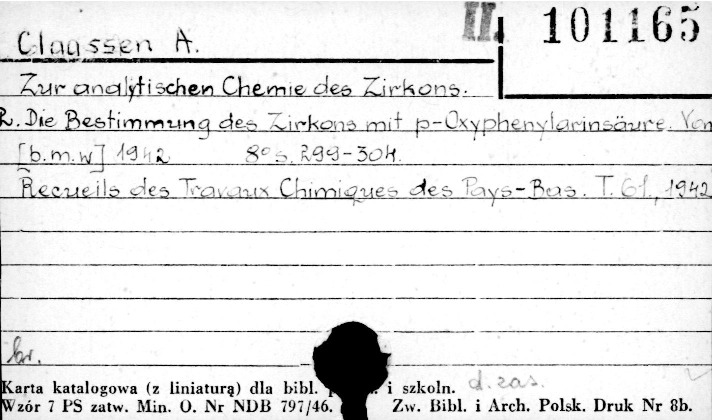 II. 101165
Claassen A.
Zur analytischen Chemie des Zirkons.
2. Die Bestimmung des Zirkons mit p-Oxyphenylarinsäure. Von
[b.m.w] 1942 8° s. 299-304.
Recueils des Travaux Chimiques des Pays-Bas. T. 61, 1942
kr.
Karta katalogowa (z liniaturą) dla bibl. i szkoln. d. zas.
Wzór 7 PS zatw. Min. O. Nr NDB 797/46. Zw. Bibl. i Arch. Polsk. Druk Nr 8b.